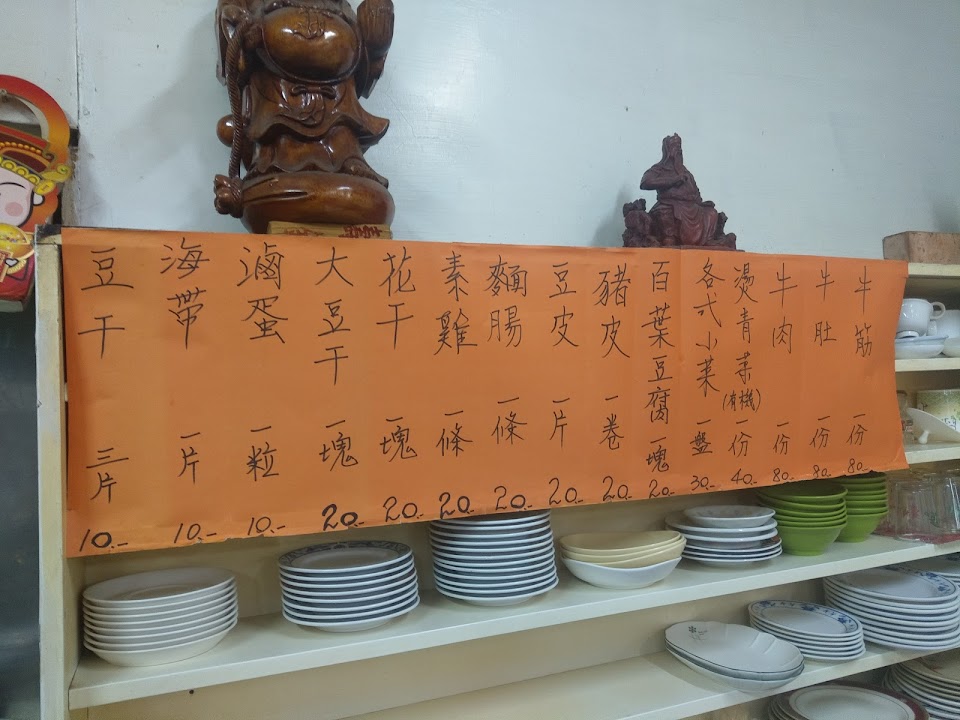 豆干 三片 10.-
海帶 一片 10.-
滷蛋 一粒 10.-
大豆干 一塊 20.-
花干 一塊 20.-
素雞 一條 20.-
麵腸 一條 20.-
豆皮 一片 20.-
豬皮 一卷 20.-
百葉豆腐 一塊 20.-
各式小菜 一盤 30.-
燙青菜(有機) 一份 40.-
牛肉 一份 80.-
牛肚 一份 80.-
牛筋 一份 80.-